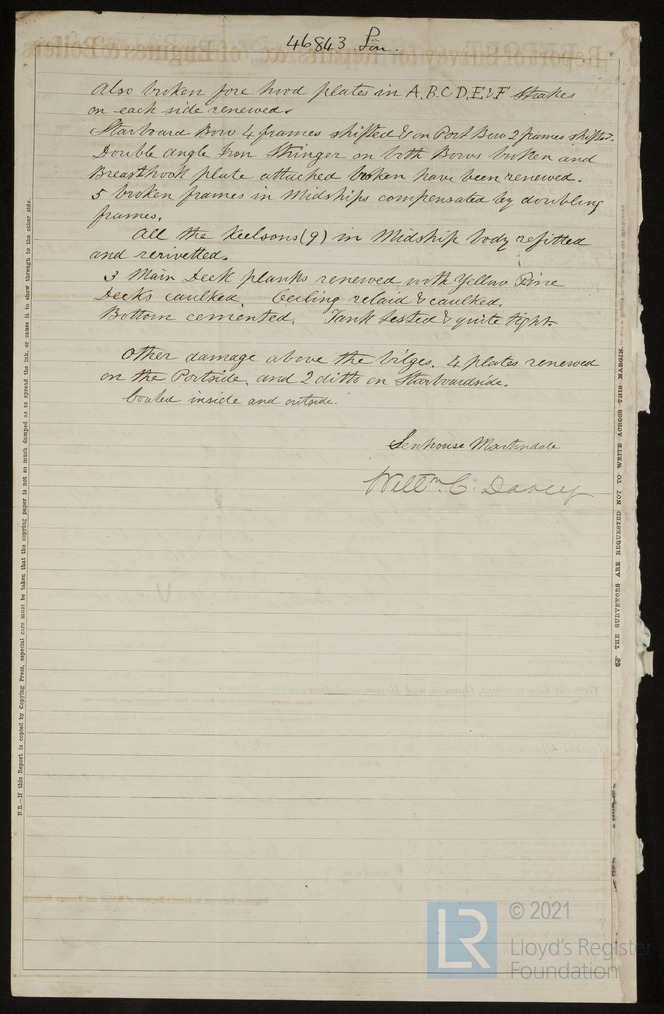 46843 Lon.
Also broken fore hood plates in A.B.C.D.E.&F Strakes
on each side renewed.
Starboard Bow 4 frames shifted & on Port Bow 2 frames shifted.
Double angle Iron Stringer on both Bows broken and
Breasthook plate attached broken have been renewed.
5 broken frames in Midships compensated by doubling
frames.
All the Keelsons (9) in Midship body refitted
and rerivetted.
3 Main Deck planks renewed with Yellow Pine
Decks caulked. Ceiling relaid & caulked.
Bottom cemented. Tank tested & quite tight.
Other damage above the bilges. 4 plates renewed
on the Portside and 2 ditto on Starboardside.
Coated inside and outside.
Senhouse Martindale
Willm. C. Davey
N.B.—If this Report is copied by Copying Press, especial care must be taken that the copying paper is not so much damped as to spread the ink, or cause it to show through to the other side.
THE SURVEYORS ARE REQUESTED NOT TO WRITE ACROSS THIS MARGIN.
LR
© 2021
Lloyd's Register
Foundation